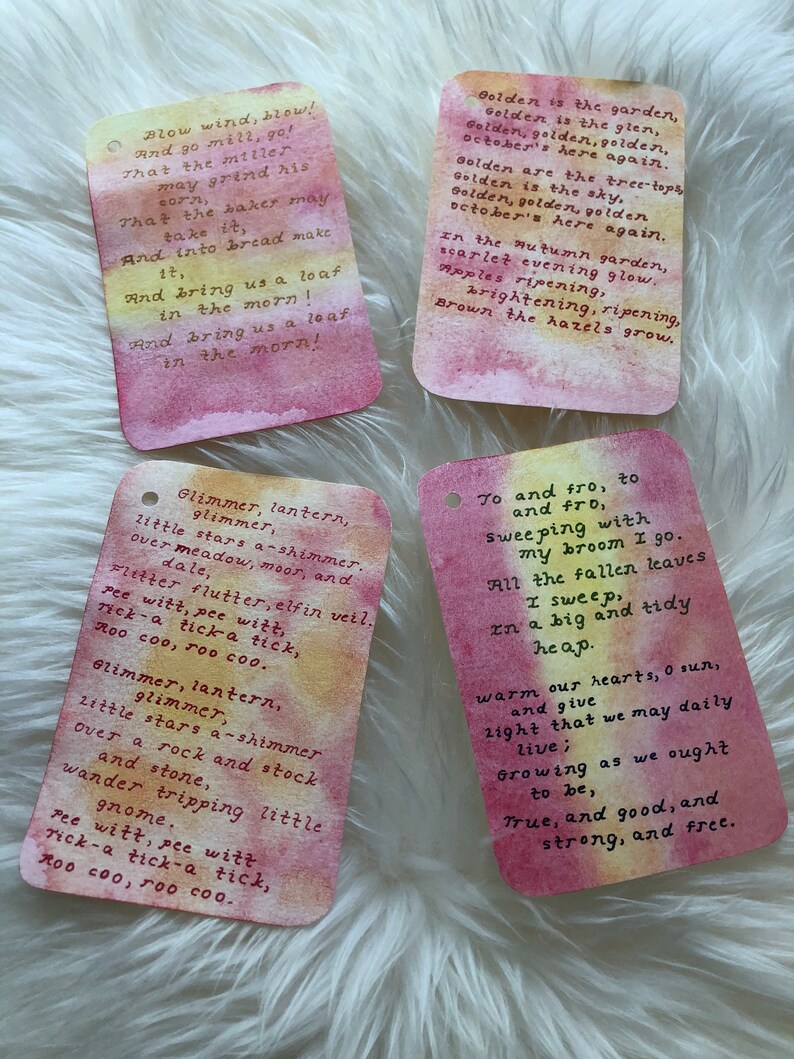 Blow wind, blow!
And go mill, go!
That the miller
may grind his
corn,
That the baker may
take it,
And into bread make
it,
And bring us a loaf
in the morn!
And bring us a loaf
in the morn!
Golden is the garden,
Golden is the glen,
Golden, golden, golden,
October's here again.
Golden are the tree-tops,
Golden is the sky,
Golden, golden, golden
October's here again.
In the Autumn garden,
scarlet evening glow.
Apples ripening,
brightening, ripening,
Brown the hazels grow.
Glimmer, lantern,
glimmer,
little stars a-shimmer.
over meadow, moor, and
dale,
Flitter flutter, elfin veil.
Pee witt, pee witt,
rick-a tick-a tick,
Roo coo, roo coo.
Glimmer, lantern,
glimmer,
Little stars a-shimmer
Over a rock and stock
and stone,
wander tripping little
gnome.
Pee witt, pee witt
rick-a tick-a tick,
Roo coo, roo coo.
To and fro, to
and fro,
sweeping with
my broom I go.
All the fallen leaves
I sweep,
In a big and tidy
heap.
Warm our hearts, O sun,
and give
Light that we may daily
live;
Growing as we ought
to be,
True, and good, and
strong, and free.